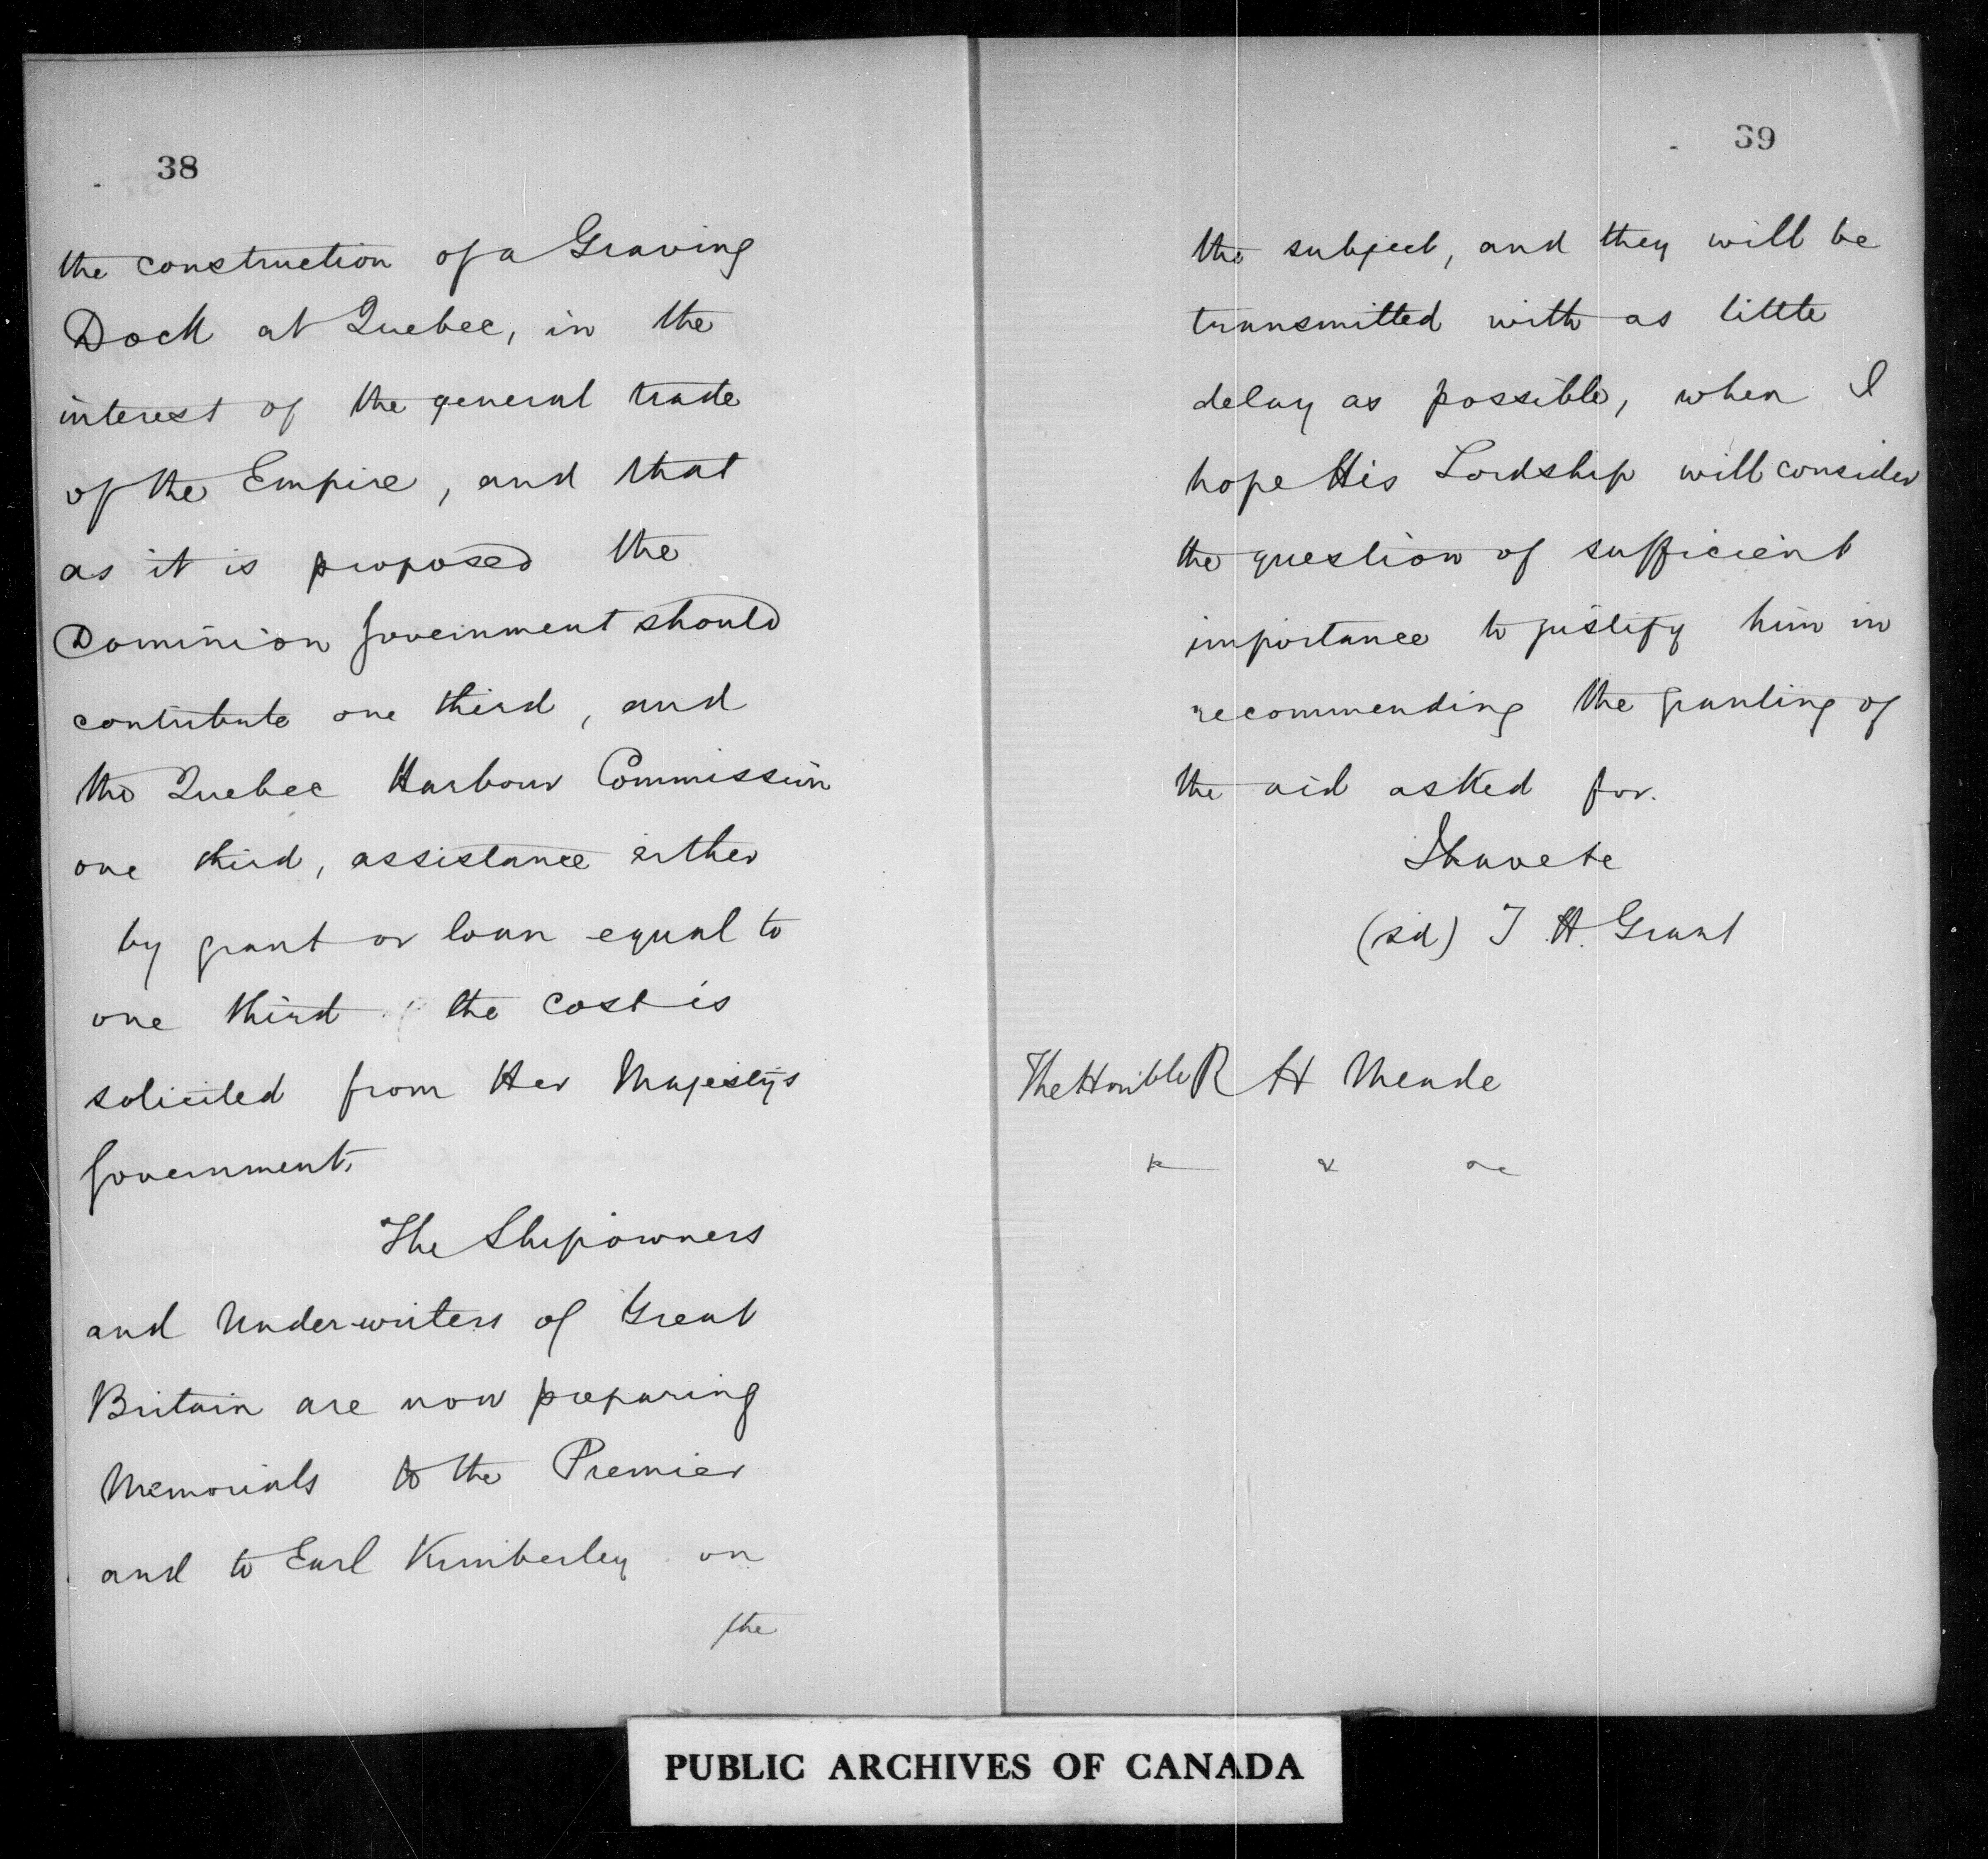 38
the construction of a Graving
Dock at Quebec, in the
interest of the general trade
of the Empire, and that
as it is proposed the
Dominion Government should
contribute one third, and
the Quebec Harbour Commission
one third, assistance either
by grant or loan equal to
one third of the cost is
solicited from Her Majesty's
Government.
The Shipowners
and Underwriters of Great
Britain are now preparing
Memorials to the Premier
and to Earl Kimberley on
the
39
the subject, and they will be
transmitted with as little
delay as possible, when I
hope His Lordship will consider
the question of sufficient
importance to justify him in
recommending the granting of
the aid asked for.
I have &c
(sd) T. H. Grant
The Honble R H Meade
&c &c &c
PUBLIC ARCHIVES OF CANADA